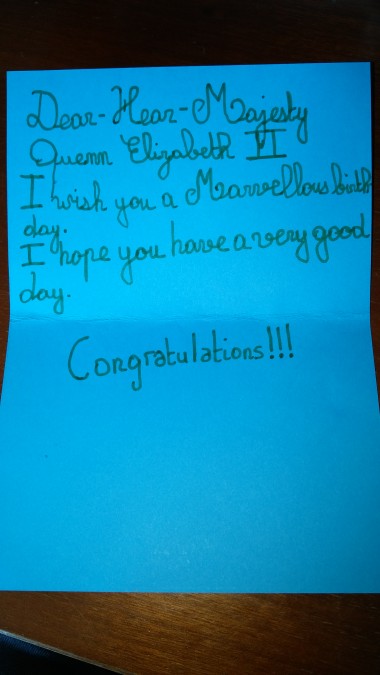 Dear-Hear-Majesty
Quenn Elizabeth II
I wish you a Marvellous birth
day.
I hope you have a very good
day.
Congratulations!!!